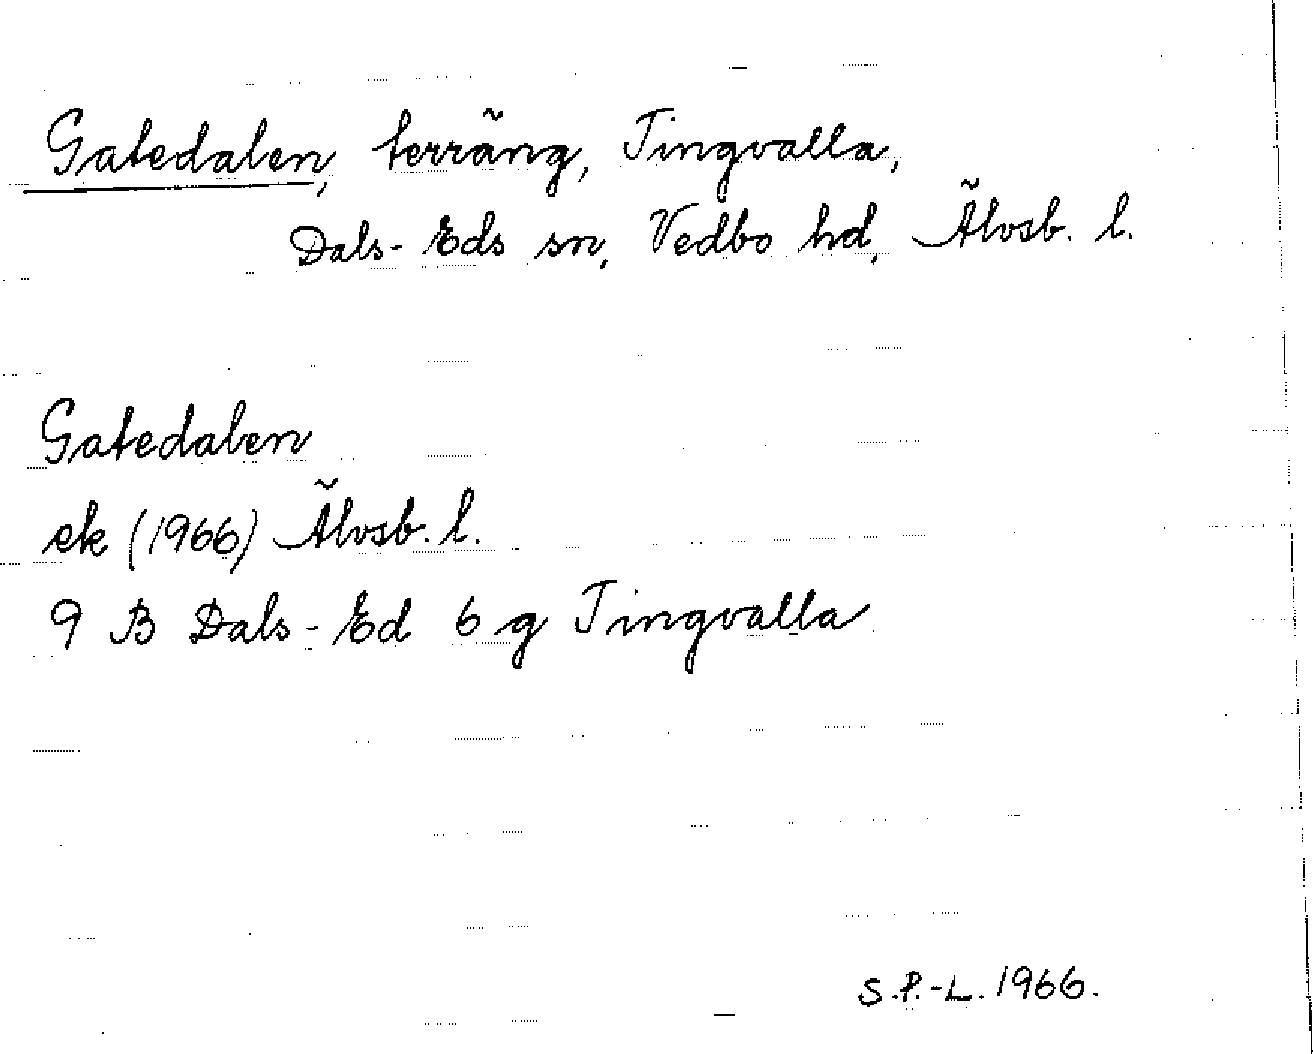 Gatedalen, terräng, Tingvalla,
Dals-Eds sn, Vedbo hd, Älvsb. l.
Gatedalen
ek (1966) Älvsb. l.
9 B Dals-Ed 6 g Tingvalla
S.P.-L. 1966.